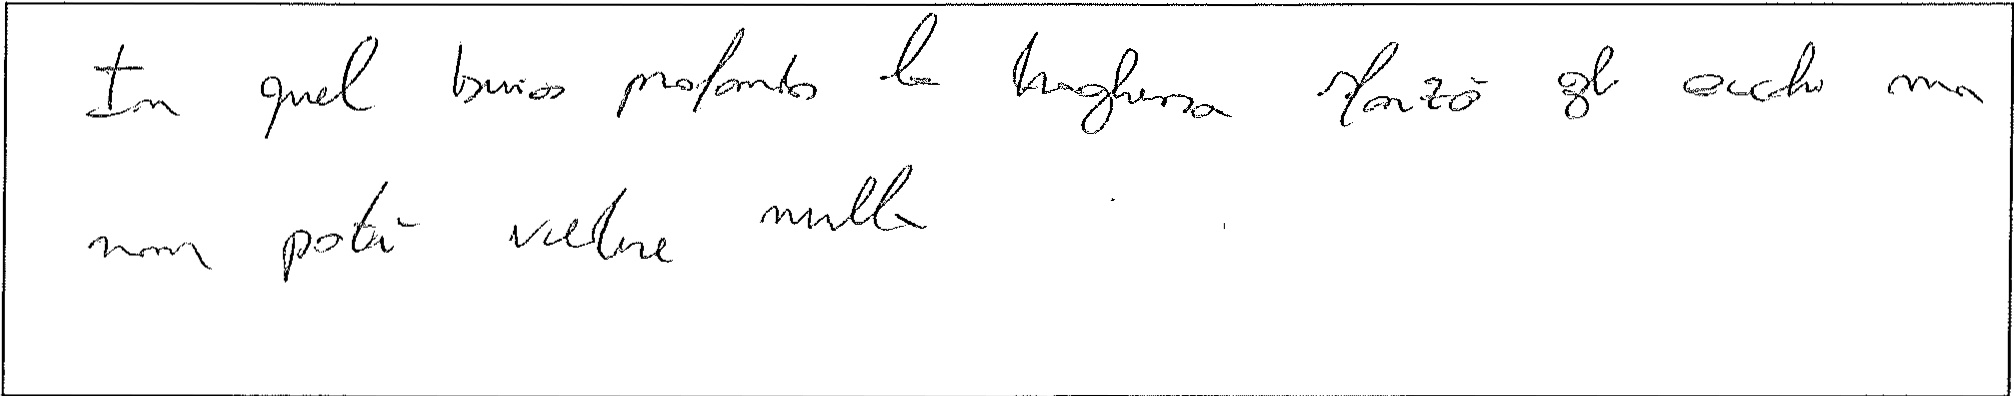 In quel buio profondo la tragherra sforzò gli occhi ma
non poté vedere nulla